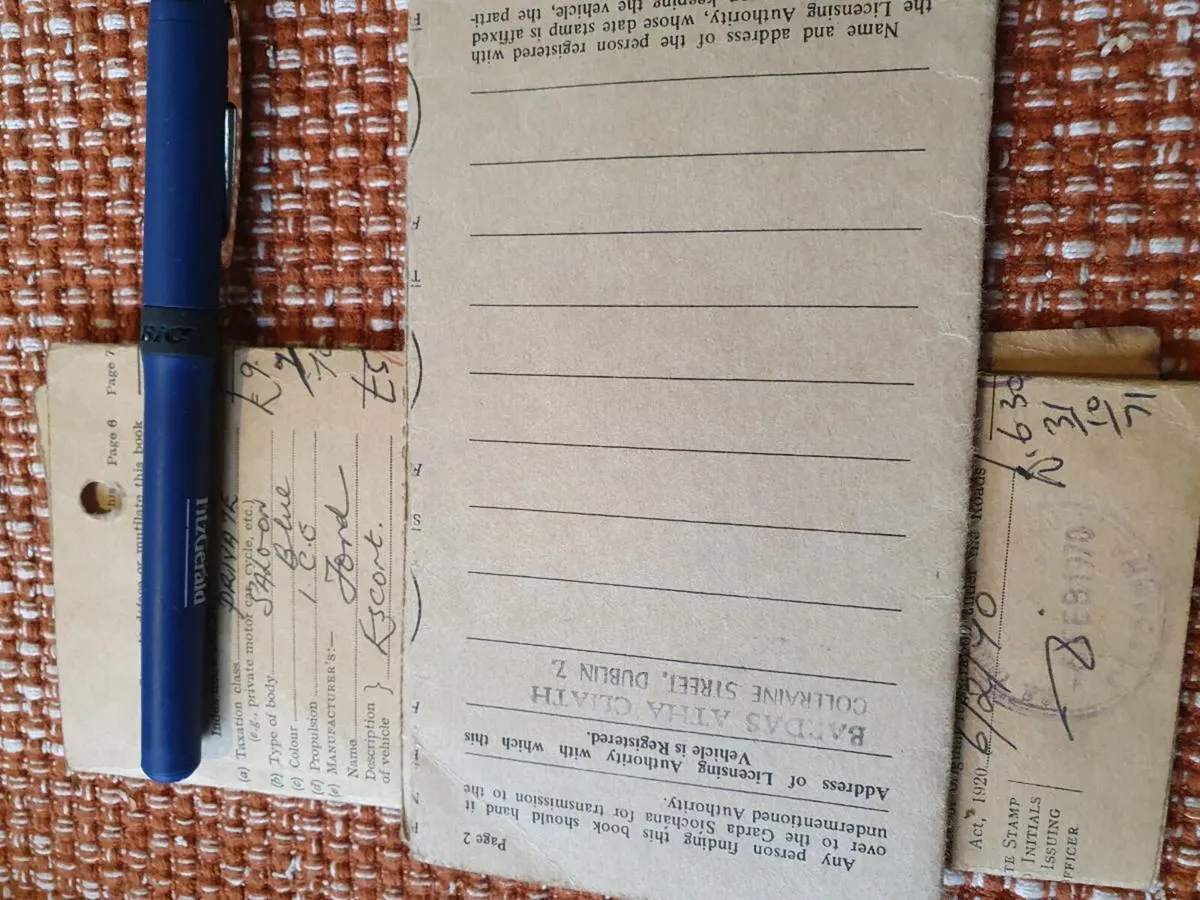 BIC
FitzGerald
Page 6 Page 7
deface or mutilate this book
(a) Taxation class PRIVATE
(e.g., private motor car, cycle, etc.)
(b) Type of body SALOON
(c) Colour Blue
(d) Propulsion I C.E
(e) MANUFACTURER'S:—
Name Ford
Description } Escort.
of vehicle
£9.
Page 2
Any person finding this book should hand it
over to the Garda Siochana for transmission to the
undermentioned Authority.
Address of Licensing Authority with which this
Vehicle is Registered.
BARDAS ATHA CLIATH
COLERAINE STREET, DUBLIN 7.
Name and address of the person registered with
the Licensing Authority, whose date stamp is affixed
keeping the vehicle, the parti-
under the Roads
Act, 1920 6/2/70
TE STAMP
INITIALS
ISSUING
FFICER
FEB 1970
630
31
10
71